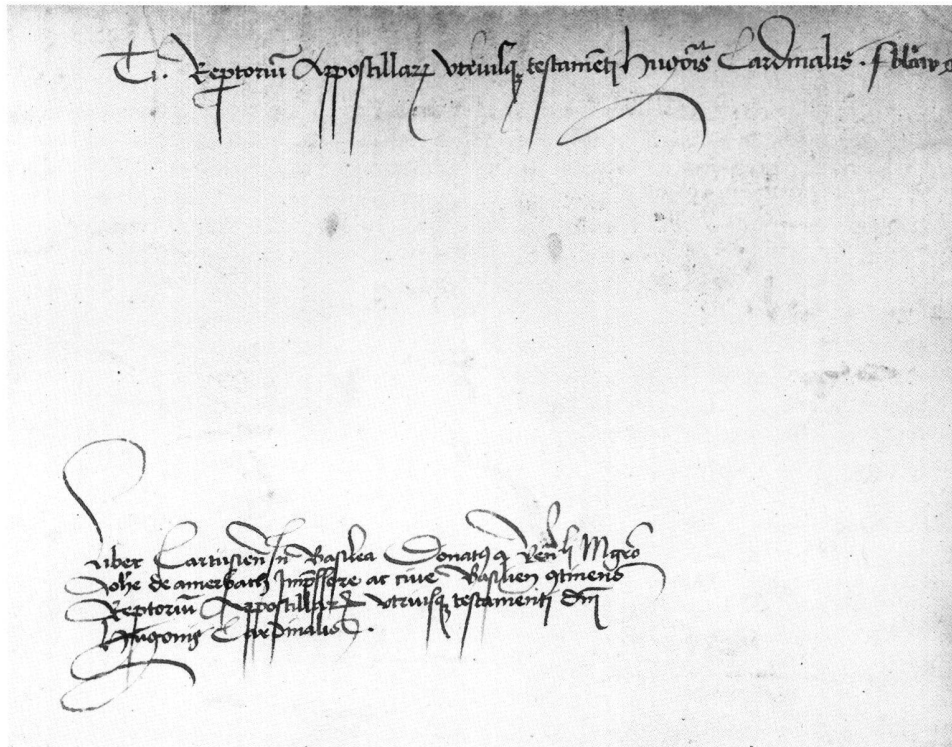 Ti. Rep̄toriū Appostillarꝝ vtriusq̨ testamēti Hugōis Cardinalis.
Liber Cartusieñ in Basilea Donatꝰ a Ven̄li Mgr̄o
Joh̄e de amerbach Imp̄ssore ac ciue Basilieñ ꝯtinens
Rep̄toriū Appostillarꝝ vtriusq̨ testamenti Dn̄i
Hugonis Cardinalis.